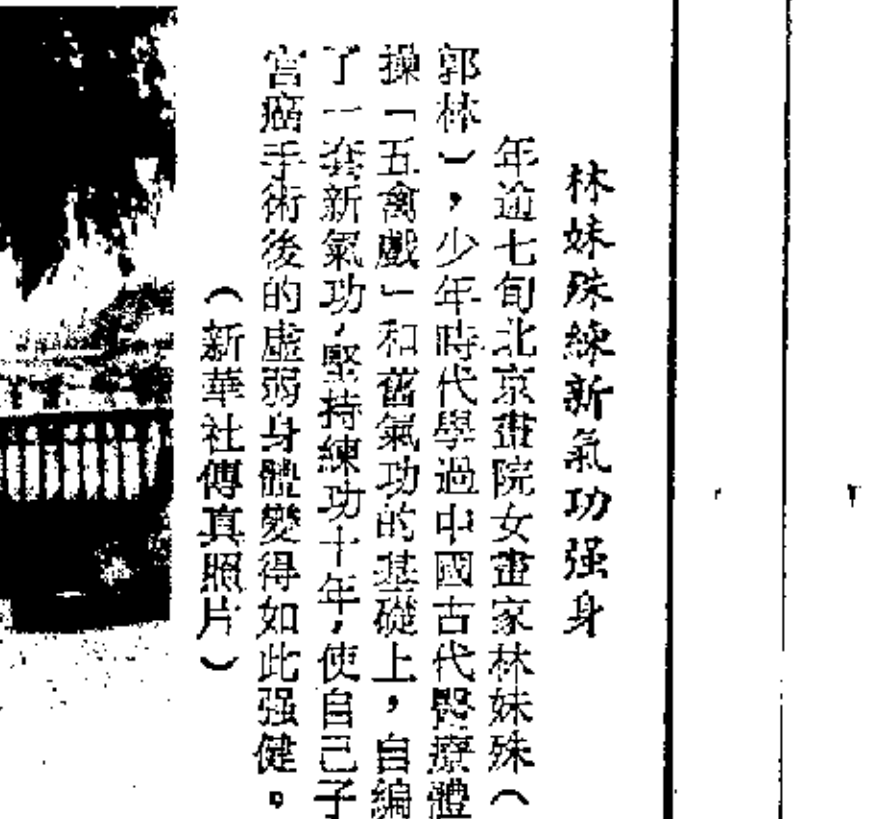 林妹殊練新氣功强身
年逾七旬北京畫院女畫家林妹殊（
郭林），少年時代學過中國古代醫療體
操「五禽戲」和舊氣功的基礎上，自編
了一套新氣功，堅持練功十年，使自己子
宮癌手術後的虛弱身體變得如此强健。
（新華社傳真照片）